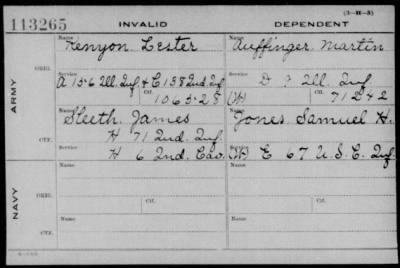 (3-H-3)
113265 INVALID DEPENDENT
Name Name
Kenyon Lester Auffinger Martin
ARMY
ORIG.
Service Service
A 156 Ill. Inf. & E 138 Ind. Inf D ? Ill. Inf.
Ctf. 1065.28 (W) Ctf. 71242
Name Name
Sleeth James Jones Samuel H.
CTF.
H 71 Ind. Inf.
Service Service
H 6 Ind. Cav. (W) E 67 U.S.C. Inf.
NAVY
Name Name
ORIG.
Ctf. Ctf.
Service Service
Name Name
CTF.
Service Service